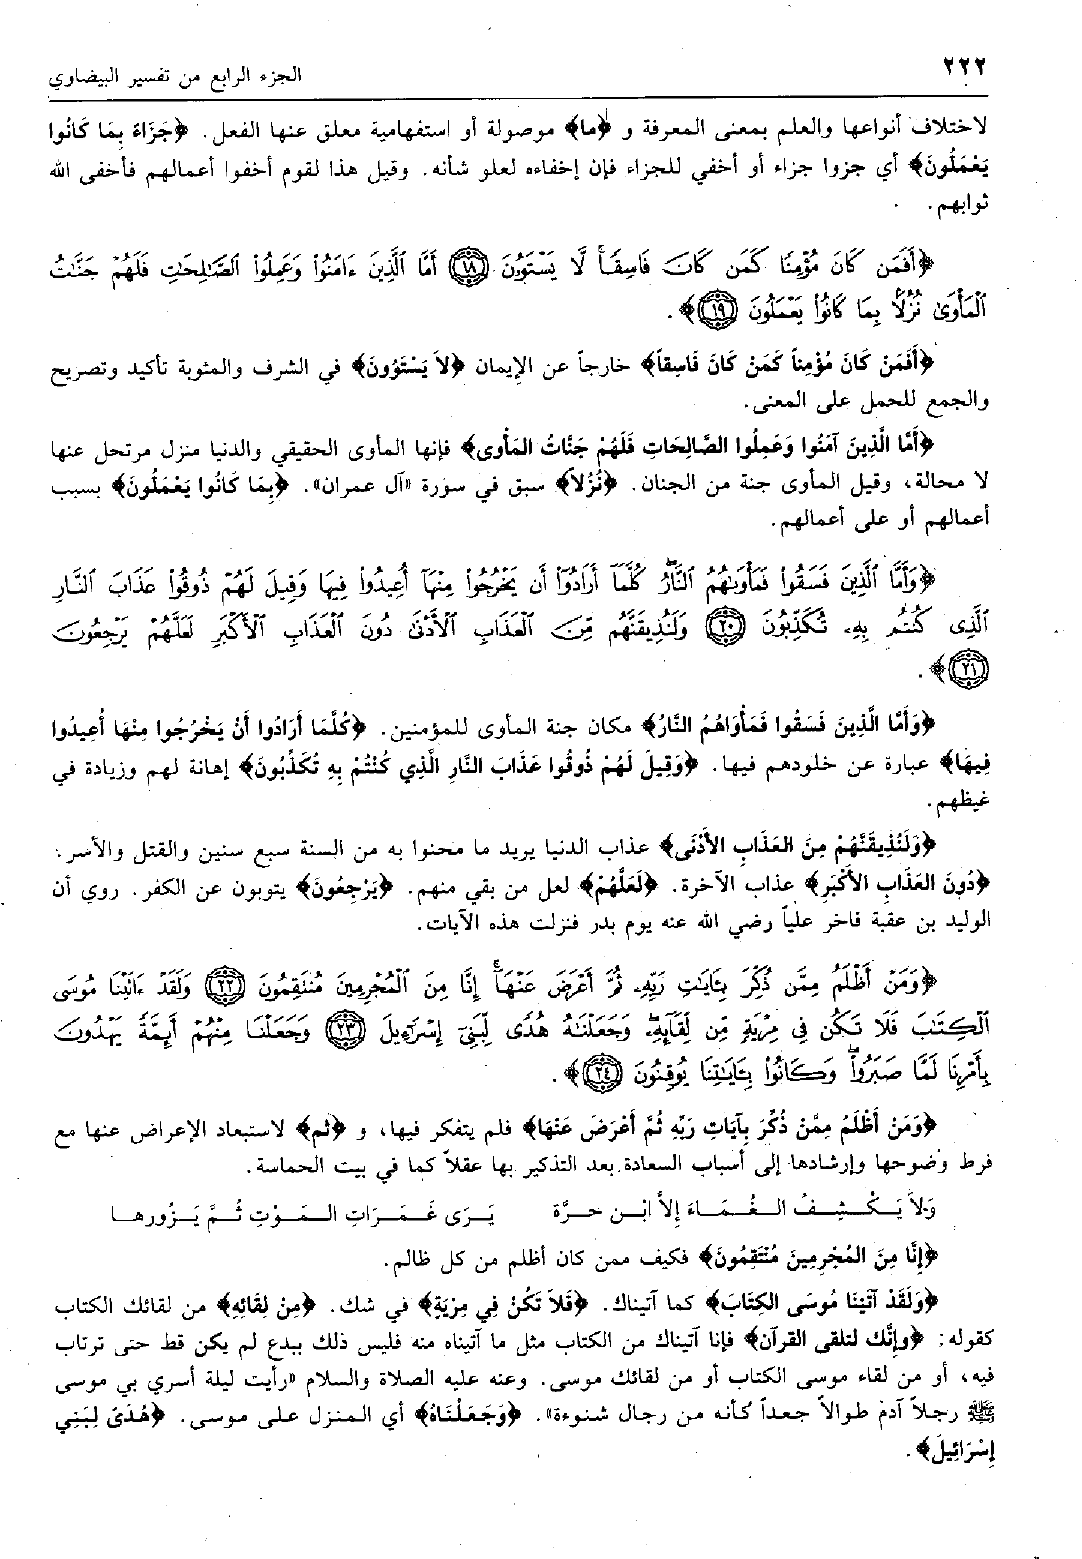 ٢٢٢
الجزء الرابع من تفسير البيضاوي
لاختلاف أنواعها والعلم بمعنى المعرفة و ﴿ما﴾ موصولة أو استفهامية معلق عنها الفعل. ﴿جَزَاءً بِمَا كَانُوا
يَعْمَلُونَ﴾ أي جزوا جزاء أو أخفي للجزاء فإن إخفاءه لعلو شأنه. وقيل هذا لقوم أخفوا أعمالهم فأخفى الله
ثوابهم.
﴿أَفَمَن كَانَ مُؤْمِنًا كَمَن كَانَ فَاسِقًا ۚ لَّا يَسْتَوُۥنَ ﴿١٨﴾ أَمَّا ٱلَّذِينَ ءَامَنُوا۟ وَعَمِلُوا۟ ٱلصَّـٰلِحَـٰتِ فَلَهُمْ جَنَّـٰتُ
ٱلْمَأْوَىٰ نُزُلًۢا بِمَا كَانُوا۟ يَعْمَلُونَ ﴿١٩﴾﴾.
﴿أَفَمَنْ كَانَ مُؤْمِناً كَمَنْ كَانَ فَاسِقاً﴾ خارجاً عن الإيمان ﴿لاَ يَسْتَوُونَ﴾ في الشرف والمثوبة تأكيد وتصريح
والجمع للحمل على المعنى.
﴿أَمَّا الَّذِينَ آمَنُوا وَعَمِلُوا الصَّالِحَاتِ فَلَهُمْ جَنَّاتُ المَأْوى﴾ فإنها المأوى الحقيقي والدنيا منزل مرتحل عنها
لا محالة، وقيل المأوى جنة من الجنان. ﴿نُزُلاً﴾ سبق في سورة «آل عمران». ﴿بِمَا كَانُوا يَعْمَلُونَ﴾ بسبب
أعمالهم أو على أعمالهم.
﴿وَأَمَّا ٱلَّذِينَ فَسَقُوا۟ فَمَأْوَىٰهُمُ ٱلنَّارُ ۖ كُلَّمَآ أَرَادُوٓا۟ أَن يَخْرُجُوا۟ مِنْهَآ أُعِيدُوا۟ فِيهَا وَقِيلَ لَهُمْ ذُوقُوا۟ عَذَابَ ٱلنَّارِ
ٱلَّذِى كُنتُم بِهِۦ تُكَذِّبُونَ ﴿٢٠﴾ وَلَنُذِيقَنَّهُم مِّنَ ٱلْعَذَابِ ٱلْأَدْنَىٰ دُونَ ٱلْعَذَابِ ٱلْأَكْبَرِ لَعَلَّهُمْ يَرْجِعُونَ
﴿٢١﴾﴾.
﴿وَأَمَّا الَّذِينَ فَسَقُوا فَمَأْوَاهُمُ النَّارُ﴾ مكان جنة المأوى للمؤمنين. ﴿كُلَّمَا أَرَادُوا أَنْ يَخْرُجُوا مِنْهَا أُعِيدُوا
فِيهَا﴾ عبارة عن خلودهم فيها. ﴿وَقِيلَ لَهُمْ ذُوقُوا عَذَابَ النَّارِ الَّذِي كُنْتُمْ بِهِ تُكَذِّبُونَ﴾ إهانة لهم وزيادة في
غيظهم.
﴿وَلَنُذِيقَنَّهُمْ مِنَ العَذَابِ الأَدْنَى﴾ عذاب الدنيا يريد ما محنوا به من السنة سبع سنين والقتل والأسر؛
﴿دُونَ العَذَابِ الأَكْبَرِ﴾ عذاب الآخرة. ﴿لَعَلَّهُمْ﴾ لعل من بقي منهم. ﴿يَرْجِعُونَ﴾ يتوبون عن الكفر. روي أن
الوليد بن عقبة فاخر علياً رضي الله عنه يوم بدر فنزلت هذه الآيات.
﴿وَمَنْ أَظْلَمُ مِمَّن ذُكِّرَ بِـَٔايَـٰتِ رَبِّهِۦ ثُمَّ أَعْرَضَ عَنْهَآ ۚ إِنَّا مِنَ ٱلْمُجْرِمِينَ مُنتَقِمُونَ ﴿٢٢﴾ وَلَقَدْ ءَاتَيْنَا مُوسَى
ٱلْكِتَـٰبَ فَلَا تَكُن فِى مِرْيَةٍ مِّن لِّقَآئِهِۦ ۖ وَجَعَلْنَـٰهُ هُدًى لِّبَنِىٓ إِسْرَٰٓءِيلَ ﴿٢٣﴾ وَجَعَلْنَا مِنْهُمْ أَئِمَّةً يَهْدُونَ
بِأَمْرِنَا لَمَّا صَبَرُوا۟ ۖ وَكَانُوا۟ بِـَٔايَـٰتِنَا يُوقِنُونَ ﴿٢٤﴾﴾.
﴿وَمَنْ أَظْلَمُ مِمَّنْ ذُكِّرَ بِآيَاتِ رَبِّهِ ثُمَّ أَعْرَضَ عَنْهَا﴾ فلم يتفكر فيها، و ﴿ثم﴾ لاستبعاد الإعراض عنها مع
فرط وضوحها وإرشادها إلى أسباب السعادة بعد التذكير بها عقلاً كما في بيت الحماسة.
وَلاَ يَكْشِفُ الغُمَاءَ إِلاَّ ابْن حرَّة يَرَى غَمَرَاتِ المَوْتِ ثُمَّ يَزُورهَا
﴿إِنَّا مِنَ المُجْرِمِينَ مُنْتَقِمُونَ﴾ فكيف ممن كان أظلم من كل ظالم.
﴿وَلَقَدْ آتَيْنَا مُوسَى الكِتَابَ﴾ كما آتيناك. ﴿فَلاَ تَكُنْ فِي مِرْيَةٍ﴾ في شك. ﴿مِنْ لِقَائِهِ﴾ من لقائك الكتاب
كقوله: ﴿وإنَّك لتلقى القرآن﴾ فإنا آتيناك من الكتاب مثل ما آتيناه منه فليس ذلك ببدع لم يكن قط حتى ترتاب
فيه، أو من لقاء موسى الكتاب أو من لقائك موسى. وعنه عليه الصلاة والسلام «رأيت ليلة أسري بي موسى
ﷺ رجلاً آدم طوالاً جعداً كأنه من رجال شنوءة». ﴿وَجَعَلْنَاهُ﴾ أي المنزل على موسى. ﴿هُدَىً لِبَنِي
إِسْرَائِيلَ﴾.